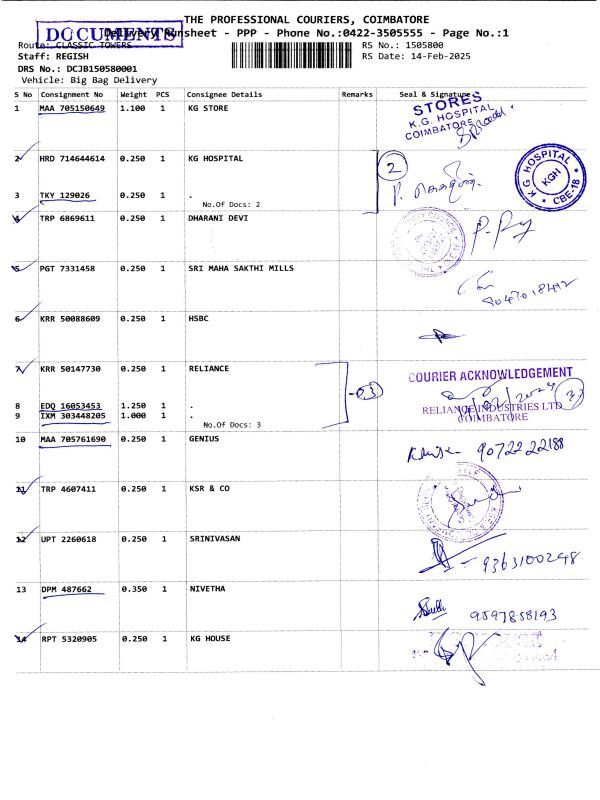 THE PROFESSIONAL COURIERS, COIMBATORE
DOCUMENTS
Delivery Runsheet - PPP - Phone No.:0422-3505555 - Page No.:1
Route: CLASSIC TOWERS RS No.: 1505800
Staff: REGISH RS Date: 14-Feb-2025
DRS No.: DCJB150580001
Vehicle: Big Bag Delivery
S No Consignment No Weight PCS Consignee Details Remarks Seal & Signature
1 MAA 705150649 1.100 1 KG STORE
STORES
K.G. HOSPITAL
COIMBATORE
2 HRD 714644614 0.250 1 KG HOSPITAL
2
K G HOSPITAL
KGH
* CBE-18 *
3 TKY 129026 0.250 1 .
No.Of Docs: 2
4 TRP 6869611 0.250 1 DHARANI DEVI
5 PGT 7331458 0.250 1 SRI MAHA SAKTHI MILLS
6 KRR 50088609 0.250 1 HSBC
7 KRR 50147730 0.250 1 RELIANCE
COURIER ACKNOWLEDGEMENT
8 EDQ 16053453 1.250 1 .
RELIANCE INDUSTRIES LTD
9 IXM 303448205 1.000 1 .
COIMBATORE
No.Of Docs: 3
10 MAA 705761690 0.250 1 GENIUS
9072222188
11 TRP 4607411 0.250 1 KSR & CO
12 UPT 2260618 0.250 1 SRINIVASAN
9363100248
13 DPM 487662 0.350 1 NIVETHA
9597858193
14 RPT 5320905 0.250 1 KG HOUSE